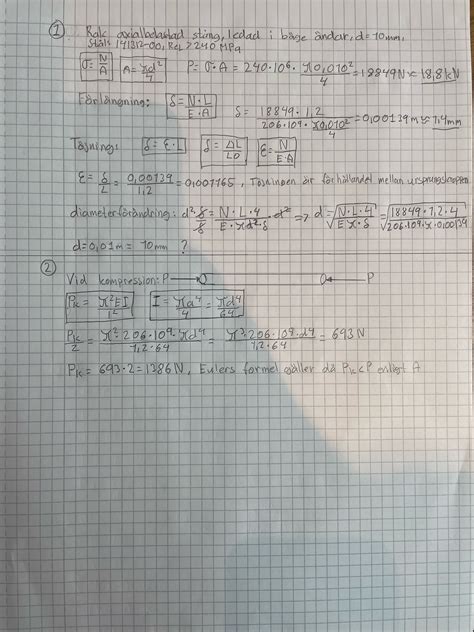 ① Rak axialbelastad stång, ledad i båge ändar, d=10mm,
Stål: 141312-00, ReL>240 MPa
σ=N/A A=πd²/4 P=σ·A=240·10⁶·π0,010²/4=18849N≈18,8kN
Förlängning: δ=N·L/E·A δ=18849·1,2/(206·10⁹·π0,010²/4)=0,00139m≈1,4mm
Töjning: δ=ε·L δ=ΔL/L0 ε=N/E·A
ε=δ/L=0,00139/1,2=0,001165, Töjningen är förhållandet mellan ursprungskroppen
diameterförändring: d²·δ/δ=N·L·4/E·πd²·δ·d² => d=√(N·L·4/E·π·δ)=√(18849·1,2·4/206·10⁹·π·0,00139)
d=0,01m=10mm ?
② Vid kompression: P→ ←P
Pk=π²EI/l² I=πa⁴/4=πd⁴/64
Pk/2=π²·206·10⁹·πd⁴/1,2·64=π³·206·10⁹·d⁴/1,2·64=693N
Pk=693·2=1386N, Eulers formel gäller då Pk<P enligt A